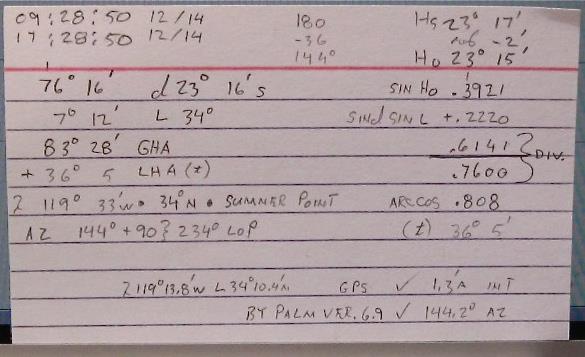 09:28:50 12/14 180 Hs 23° 17'
17:28:50 12/14 -36 -2'
144° Ho 23° 15'
76° 16' d 23° 16's SIN Ho .3921
7° 12' L 34° SINd SIN L +.2220
83° 28' GHA .6141 } DIV.
+ 36° 5 LHA (t) .7600
λ 119° 33'W • 34°N • SUMNER POINT ARCCOS .808
AZ 144° + 90} 234° LOP (t) 36° 5'
λ 119° 13.8'W L 34° 10.4'N GPS ✓ 1.3'A INT
BY PALM VER. 6.9 ✓ 144.2° AZ